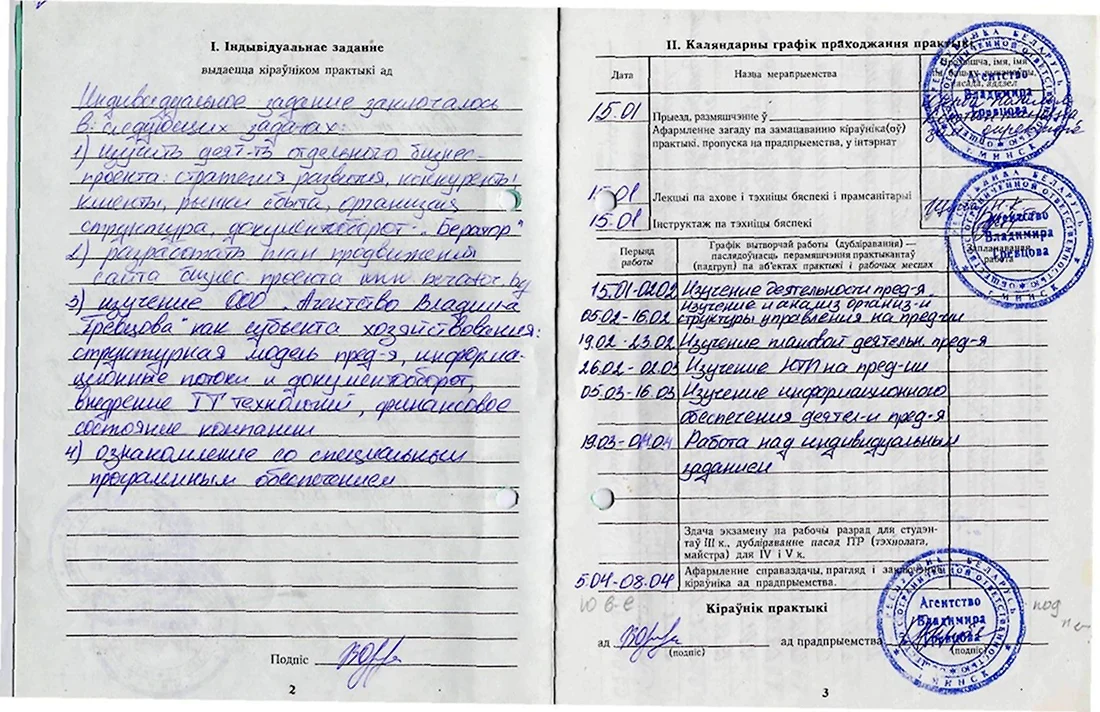 I. Індывідуальнае заданне
выдаецца кіраўніком практыкі ад
Индивидуальное задание заключалось
в следующих задачах:
1) изучить деят-ть отдельного бизнес-
проекта: стратегия развития, конкуренты
клиенты, рынки сбыта, организац
структура, документооборот - „Бератор"
2) разработать план продвижения
сайта бизнес-проекта www.
3) изучение ООО „Агентство Владимира
Гревцова" как субъекта хозяйствования:
структурная модель пред-я, информа-
ционные потоки и документооборот,
внедрение IT технологий, финансовое
состояние компании
4) ознакомление со специальным
программным обеспечением
Подпіс
2
II. Каляндарны графік праходжання практыкі
Дата
Назва мерапрыемства
15.01
Прыезд, размяшчэнне ў
Афармленне загаду па замацаванню кіраўніка(оў)
практыкі, пропуска на прадпрыемства, у інтэрнат
Лекцыі па ахове і тэхніцы бяспекі і прамсанітарыі
15.01
Інструктаж па тэхніцы бяспекі
Перыяд
работы
Графік вытворчай работы (дубліравання) —
паслядоўнасць перамяшчэння практыкантаў
(падгруп) па аб'ектах практыкі і рабочых месцах
Запланаваная
работа
15.01-02.02 Изучение деятельности пред-я
05.02-16.02 Изучение и анализ организ-й
структуры управления на пред-ии
19.02-23.02 Изучение плановой деятельн. пред-я
26.02-02.03 Изучение НТП на пред-ии
05.03-16.03 Изучение информационного
обеспечения деятел-и пред-я
19.03-04.04 Работа над индивидуальным
заданием
Здача экзамену на рабочы разрад для студэн-
таў III к., дубліраванне пасад ІТР (тэхнолага,
майстра) для IV і V к.
5.04-08.04
Афармленне справаздачы, прагляд і заключэнне
кіраўніка ад прадпрыемства.
Кіраўнік практыкі
ад
ад прадпрыемства
(подпіс)
(подпіс)
3
Агентство
Владимира
Гревцова
г. МИНСК
Агентство
Владимира
Гревцова
МИНСК
Агентство
Владимира
Гревцова
г. МИНСК